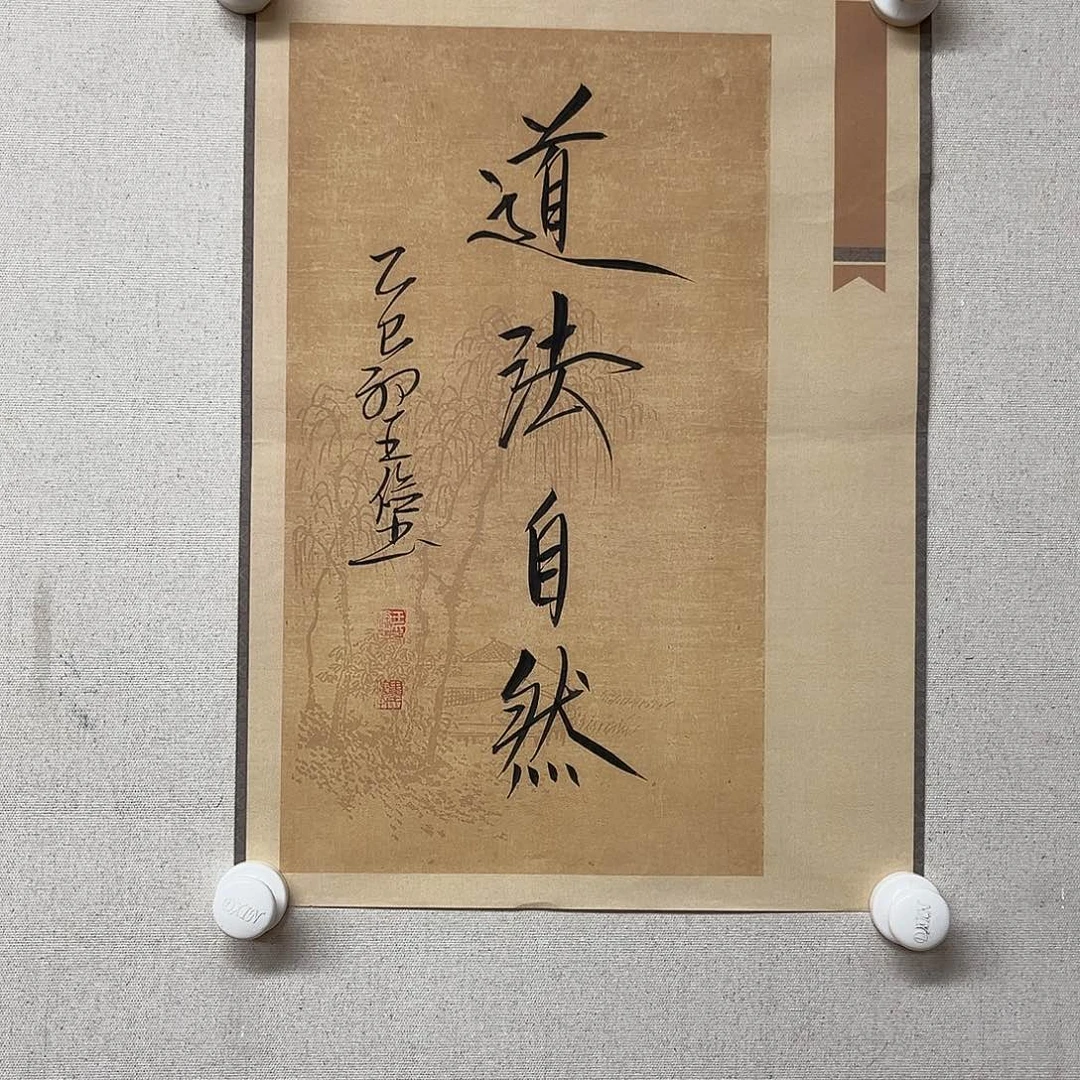 道法自然
乙巳初王